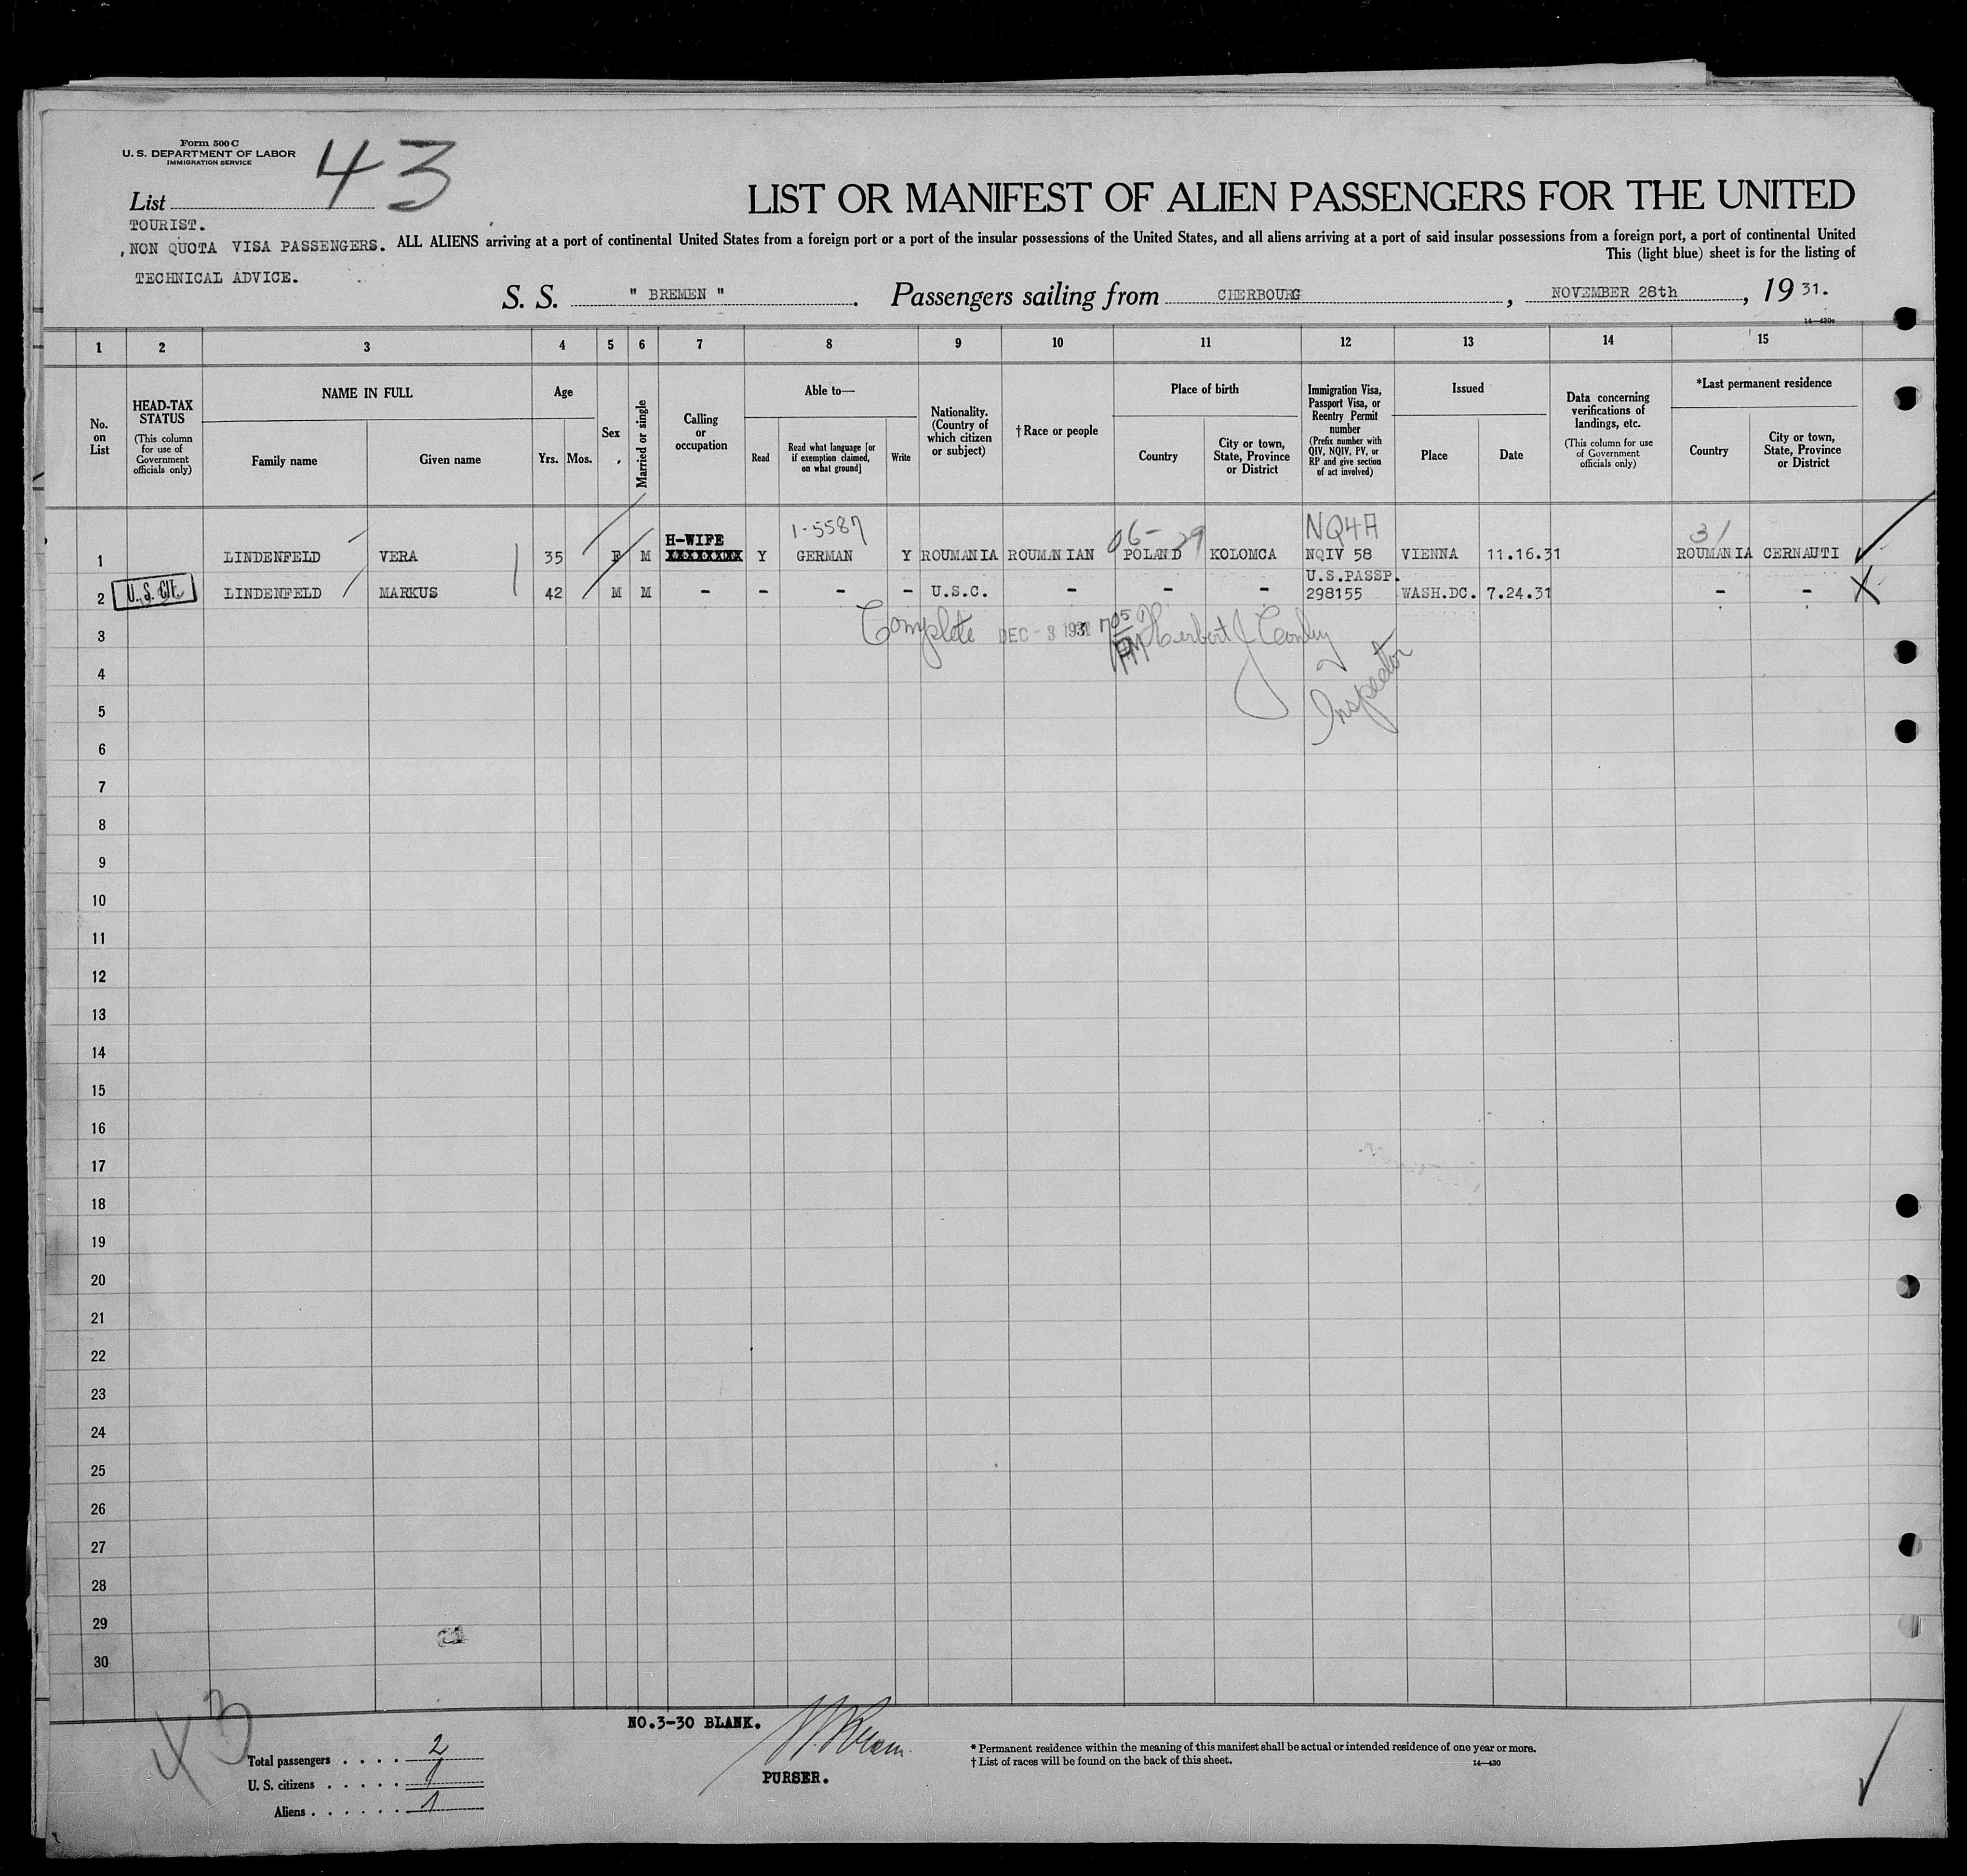 Form 500 C
U. S. DEPARTMENT OF LABOR
IMMIGRATION SERVICE
List 43
TOURIST.
NON QUOTA VISA PASSENGERS.
TECHNICAL ADVICE.
LIST OR MANIFEST OF ALIEN PASSENGERS FOR THE UNITED
ALL ALIENS arriving at a port of continental United States from a foreign port or a port of the insular possessions of the United States, and all aliens arriving at a port of said insular possessions from a foreign port, a port of continental United
This (light blue) sheet is for the listing of
S. S. " BREMEN ". Passengers sailing from CHERBOURG, NOVEMBER 28th, 19 31.
14—430c
1 2 3 4 5 6 7 8 9 10 11 12 13 14 15
No. on List
HEAD-TAX STATUS
(This column for use of Government officials only)
NAME IN FULL
Family name Given name
Age
Yrs. Mos.
Sex
Married or single
Calling or occupation
Able to—
Read
Read what language [or if exemption claimed, on what ground]
Write
Nationality. (Country of which citizen or subject)
†Race or people
Place of birth
Country
City or town, State, Province or District
Immigration Visa, Passport Visa, or Reentry Permit number
(Prefix number with QIV, NQIV, PV, or RP and give section of act involved)
Issued
Place Date
Data concerning verifications of landings, etc.
(This column for use of Government officials only)
*Last permanent residence
Country
City or town, State, Province or District
1-5587 06-29 NQ4A 31
H-WIFE
1 LINDENFELD VERA 35 F M XXXXXXXX Y GERMAN Y ROUMANIA ROUMANIAN POLAND KOLOMCA NQIV 58 VIENNA 11.16.31 ROUMANIA CERNAUTI
U.S.PASSP.
2 U. S. CIT. LINDENFELD MARKUS 42 M M - - - - U.S.C. - - - 298155 WASH.DC. 7.24.31 - - X
3 Complete DEC - 3 1931 705 PM Herbert J Conley
Inspector
4
5
6
7
8
9
10
11
12
13
14
15
16
17
18
19
20
21
22
23
24
25
26
27
28
29
30
43
NO.3-30 BLANK.
PURSER.
Total passengers . . . . 2
U. S. citizens . . . . . 1
Aliens . . . . . . 1
* Permanent residence within the meaning of this manifest shall be actual or intended residence of one year or more.
† List of races will be found on the back of this sheet.
14—430